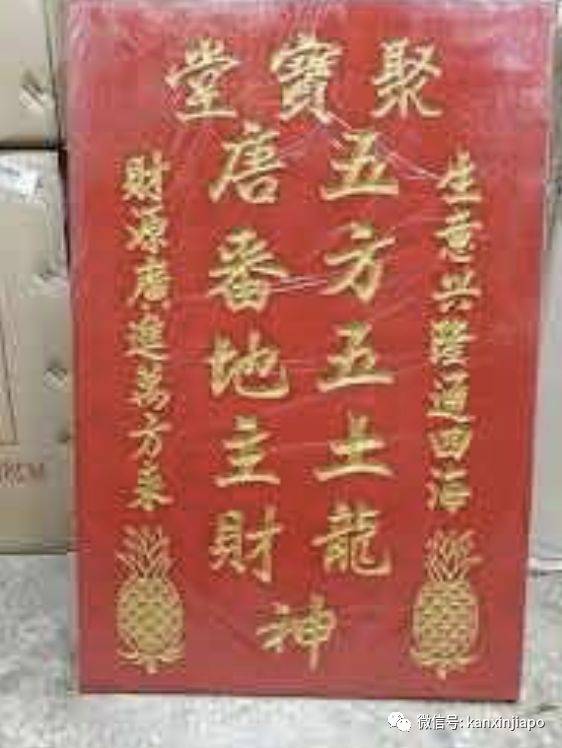 聚寶堂
生意興隆通四海
五方五土龍
唐番地主財
神
財源廣進萬方來
微信号: kanxinjiapo